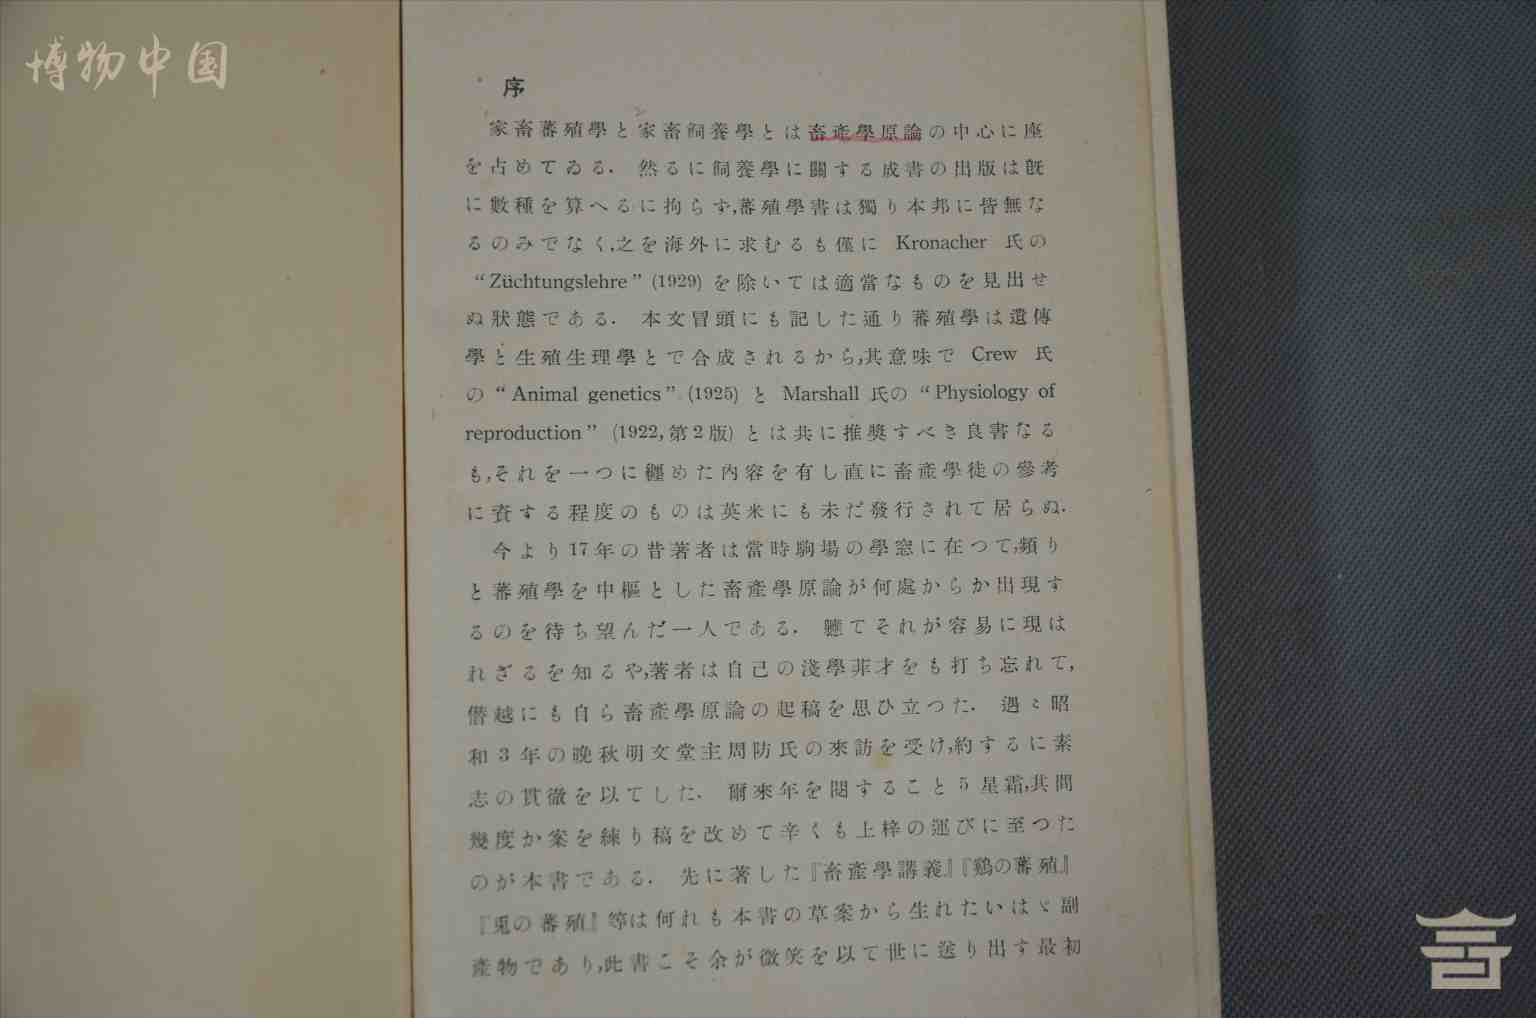 博物中国
序
家畜蕃殖學と家畜飼養學とは畜產學原論の中心に座
を占めてゐる． 然るに飼養學に關する成書の出版は旣
に數種を算へるに拘らず,蕃殖學書は獨り本邦に皆無な
るのみでなく,之を海外に求むるも僅に Kronacher 氏の
“Züchtungslehre” (1929) を除いては適當なものを見出せ
ぬ狀態である． 本文冒頭にも記した通り蕃殖學は遺傳
學と生殖生理學とで合成されるから,其意味で Crew 氏
の “Animal genetics” (1925) と Marshall 氏の “Physiology of
reproduction” (1922, 第2版) とは共に推奬すべき良書なる
も,それを一つに纏めた內容を有し直に畜產學徒の參考
に資する程度のものは英米にも未だ發行されて居らぬ．
今より17年の昔著者は當時駒場の學窓に在つて,頻り
と蕃殖學を中樞とした畜產學原論が何處からか出現す
るのを待ち望んだ一人である． 軈てそれが容易に現は
れざるを知るや,著者は自己の淺學菲才をも打ち忘れて,
僭越にも自ら畜產學原論の起稿を思ひ立つた． 遇〻昭
和3年の晚秋明文堂主周防氏の來訪を受け,約するに素
志の貫徹を以てした． 爾來年を閱すること5星霜,其間
幾度か案を練り稿を改めて辛くも上梓の運びに至つた
のが本書である． 先に著した『畜產學講義』『鷄の蕃殖』
『兎の蕃殖』等は何れも本書の草案から生れたいはゞ副
產物であり,此書こそ余が微笑を以て世に送り出す最初